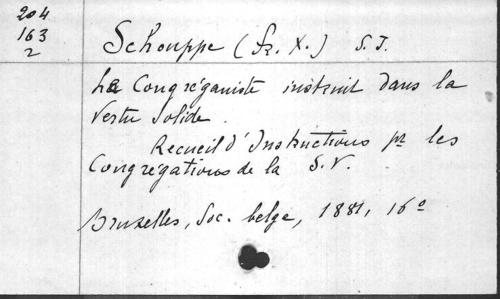 204
163
2
Schouppe (Fr. X.) S. J.
Le Congréganiste instruit dans la
Vertu Solide.
Recueil d'Instructions pr les
Congrégations de la S. V.
Bruxelles, Soc. belge, 1881, 16°